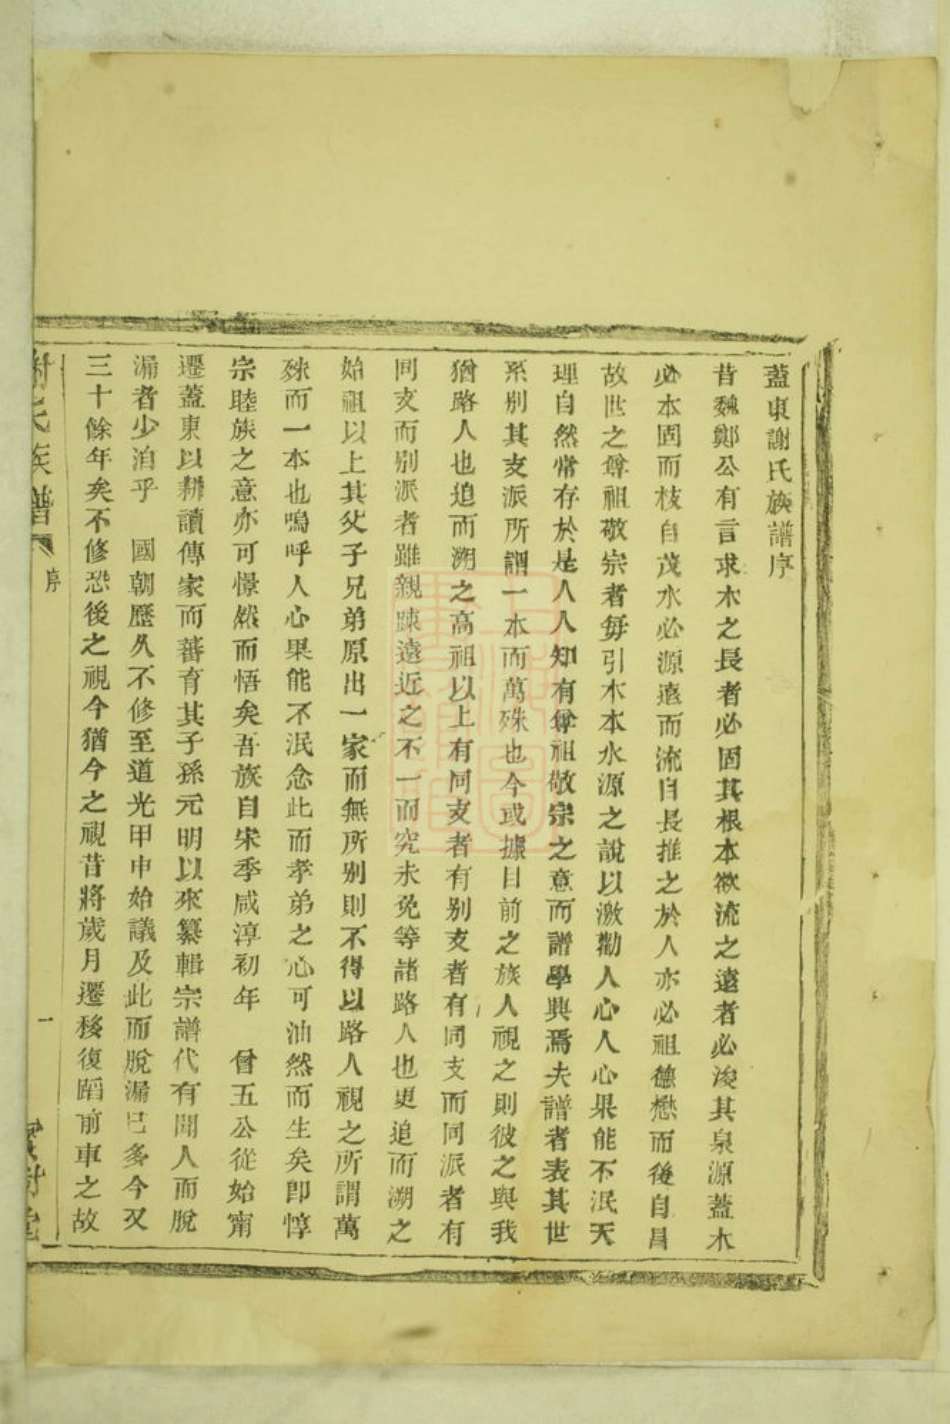 蓋東謝氏族譜序
昔魏鄭公有言求木之長者必固其根本欲流之遠者必浚其泉源蓋木
必本固而枝自茂水必源遠而流自長推之於人亦必祖德懋而後自昌
故世之尊祖敬宗者每引木本水源之說以激勸人心人心果能不泯天
理自然常存於是人人知有尊祖敬宗之意而譜學興焉夫譜者表其世
系別其支派所謂一本而萬殊也今或據目前之族人視之則彼之與我
猶路人也追而溯之高祖以上有同支者有別支者有同支而同派者有
同支而別派者雖親踈遠近之不一而究未免等諸路人也更追而溯之
始祖以上其父子兄弟原出一家而無所别則不得以路人視之所謂萬
殊而一本也嗚呼人心果能不泯念此而孝弟之心可油然而生矣卽惇
宗睦族之意亦可憬然而悟矣吾族自宋季咸淳初年 曾五公從始甯
遷蓋東以耕讀傳家而蕃育其子孫元明以來纂輯宗譜代有聞人而脫
漏者少洎乎 國朝歷久不修至道光甲申始議及此而脫漏已多今又
三十餘年矣不修恐後之視今猶今之視昔將歲月遷移復蹈前車之故
謝氏族譜 序 一 樹堂